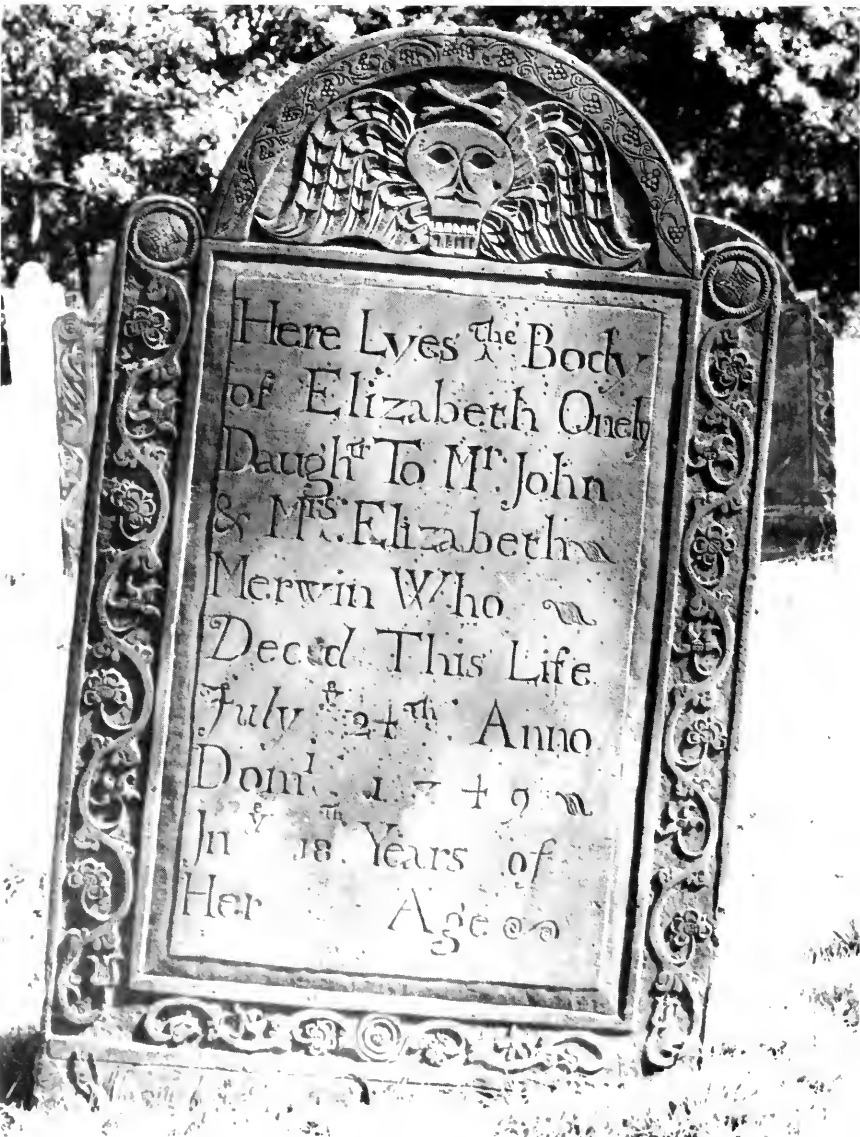 Here Lyes the Body
of Elizabeth Onely
Daughtr To Mr. John
& Mrs. Elizabeth
Merwin Who
Deced This Life
July ye 24th Anno
Domi. 1749
In ye 18th Years of
Her Age